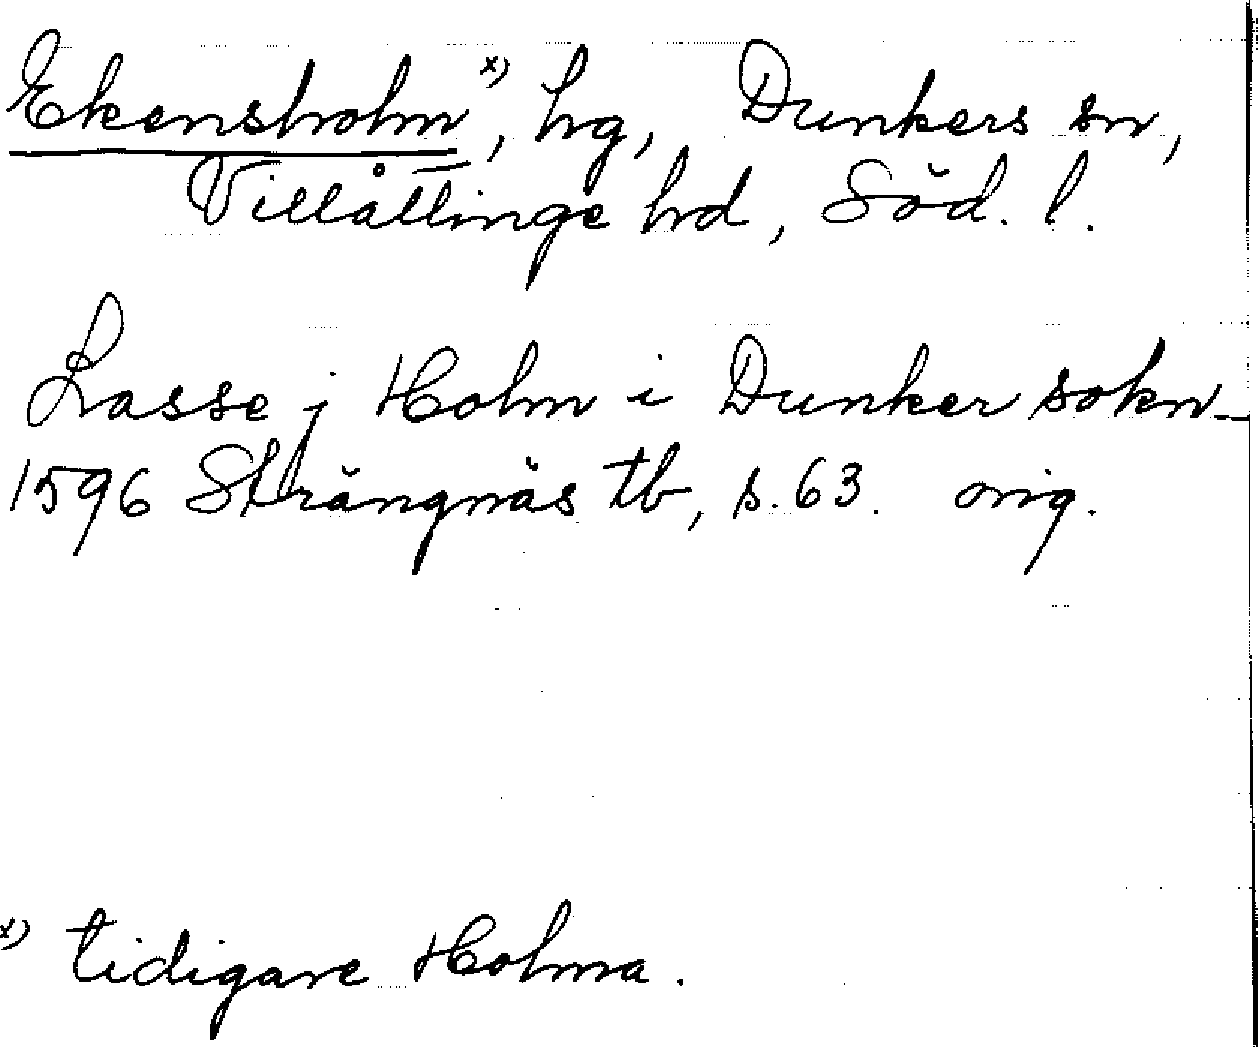 Ekensholm x), hg, Dunkers sn,
Villåttinge hd, Söd. l.
Lasse j Holm i Dunker sokn_
1596 Strängnäs tb, s. 63. orig.
x) tidigare Holma.